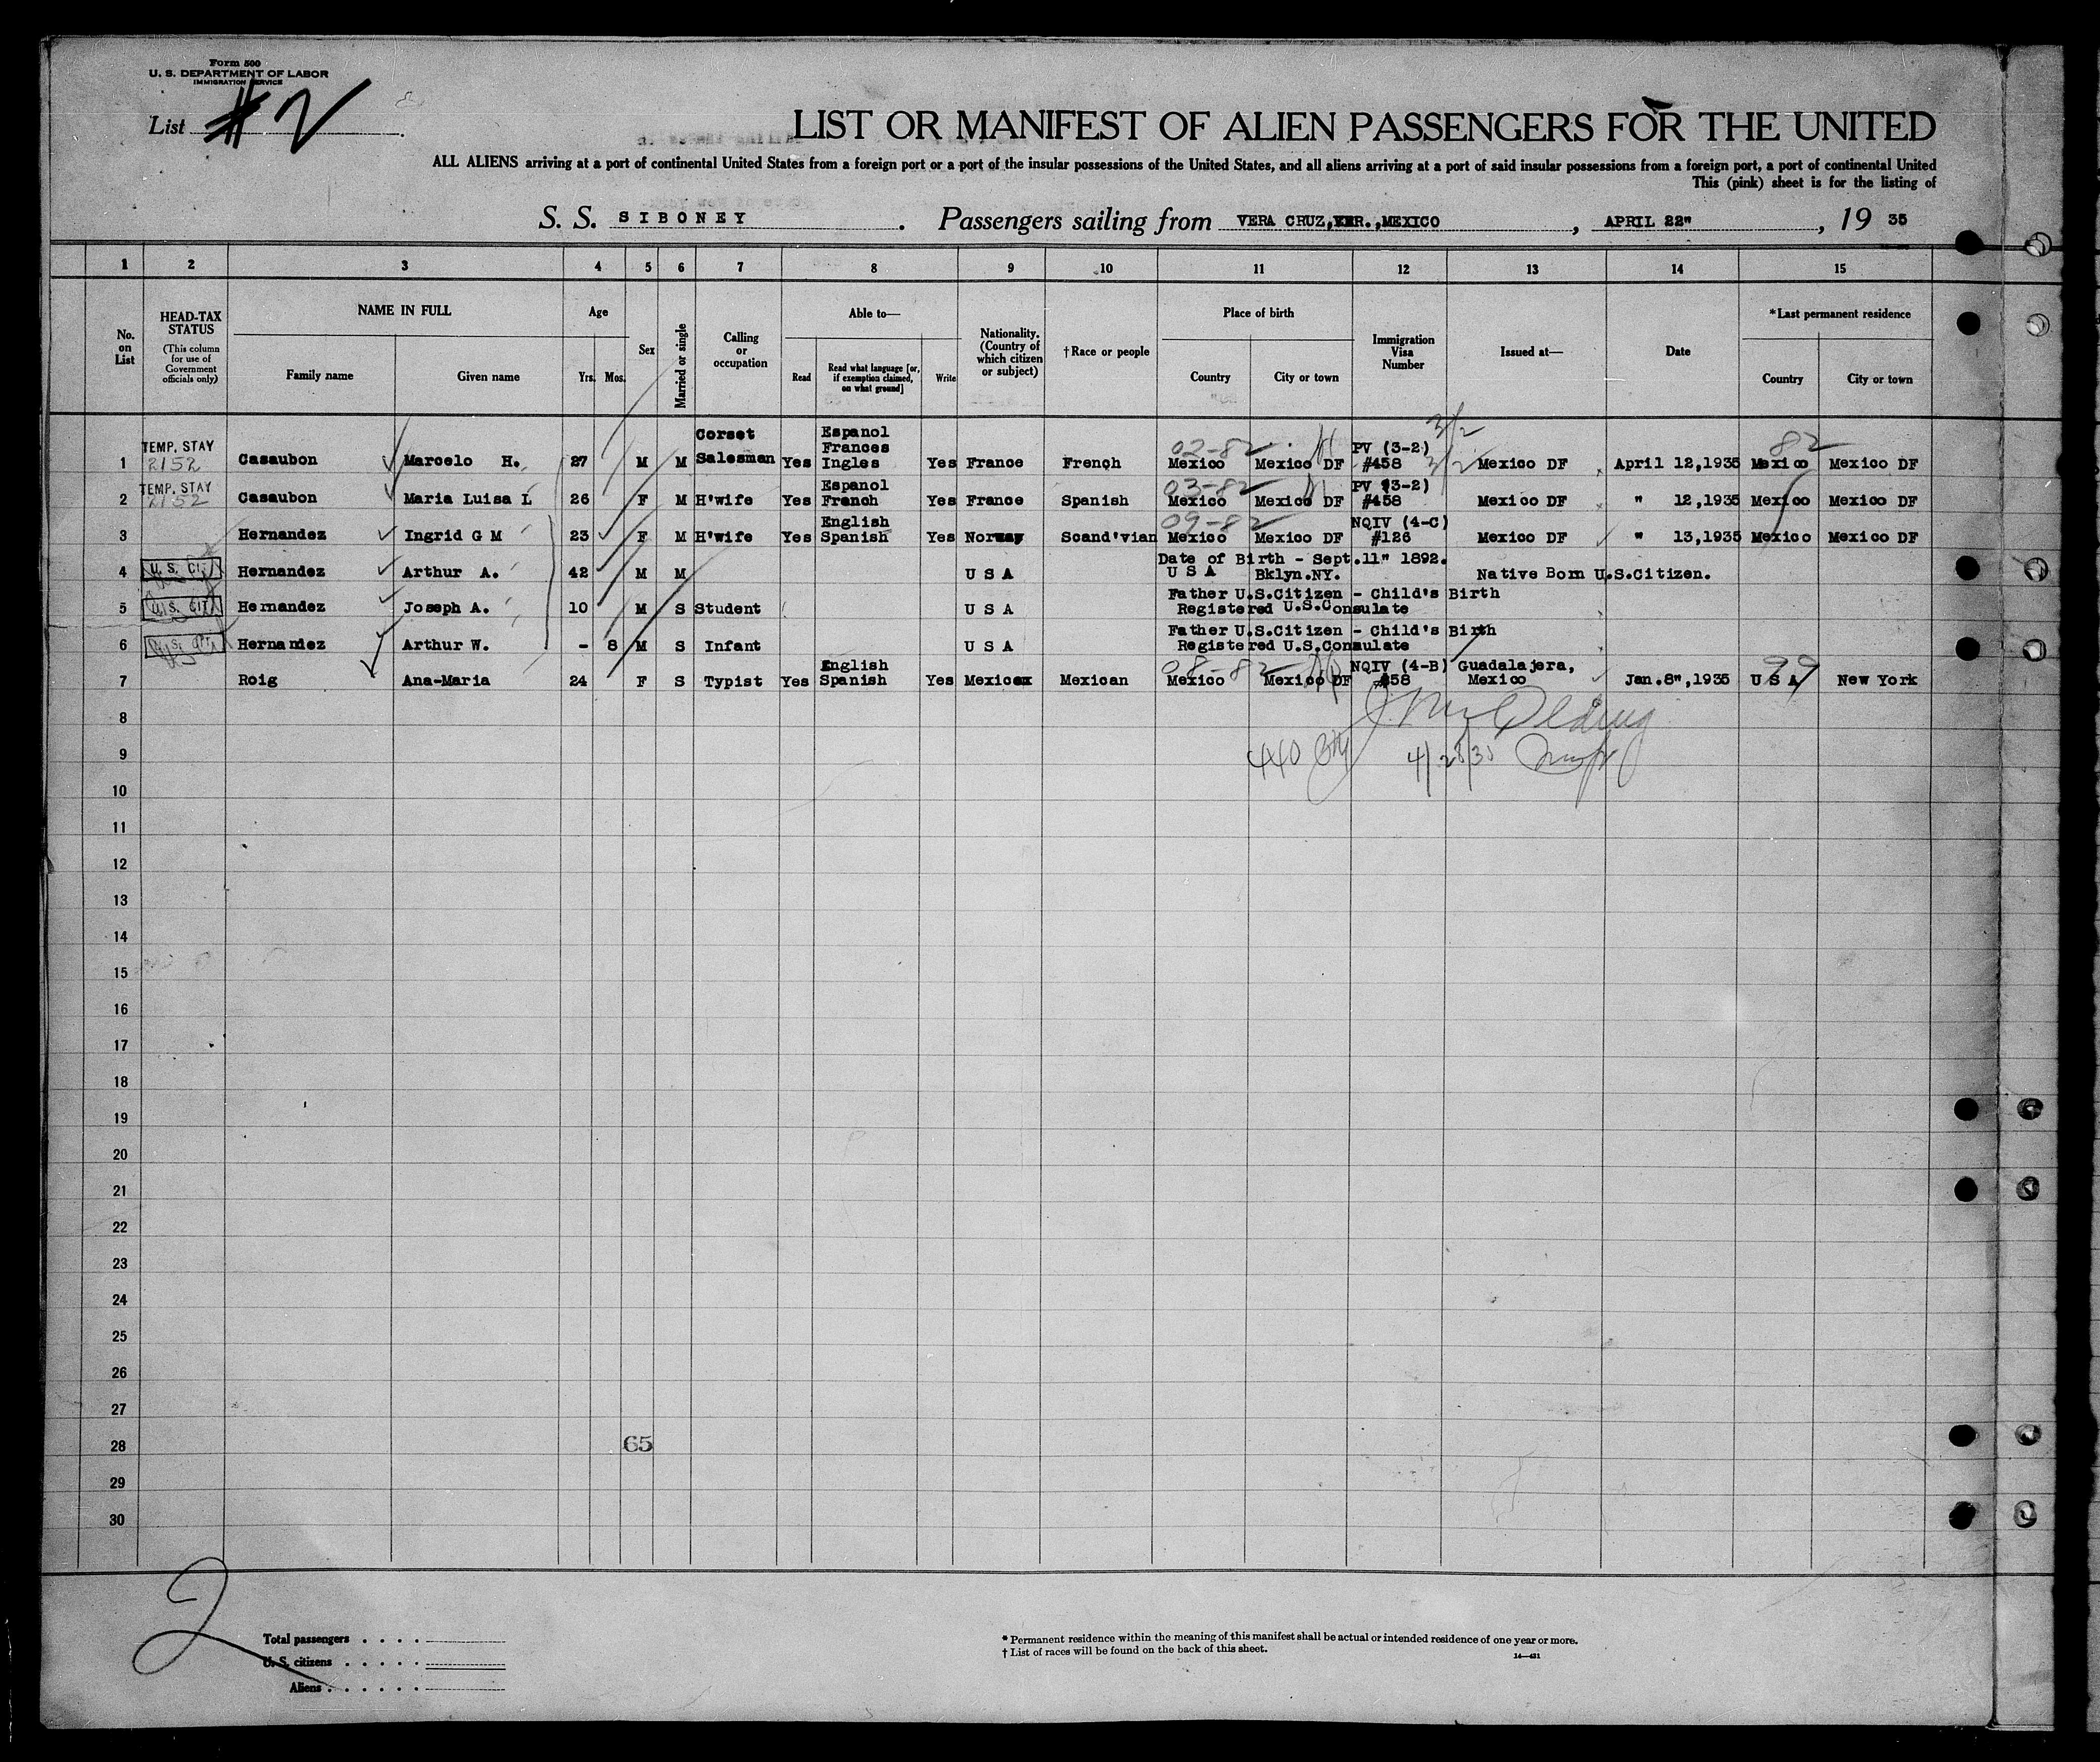 Form 500
U. S. DEPARTMENT OF LABOR
IMMIGRATION SERVICE
List # 2
LIST OR MANIFEST OF ALIEN PASSENGERS FOR THE UNITED
ALL ALIENS arriving at a port of continental United States from a foreign port or a port of the insular possessions of the United States, and all aliens arriving at a port of said insular possessions from a foreign port, a port of continental United
This (pink) sheet is for the listing of
S. S. SIBONEY. Passengers sailing from VERA CRUZ, VER., MEXICO, APRIL 22", 19 35
1 2 3 4 5 6 7 8 9 10 11 12 13 14 15
No. on List
HEAD-TAX STATUS
(This column for use of Government officials only)
NAME IN FULL
Family name Given name
Age
Yrs. Mos.
Sex
Married or single
Calling or occupation
Able to—
Read
Read what language [or, if exemption claimed, on what ground]
Write
Nationality. (Country of which citizen or subject)
† Race or people
Place of birth
Country City or town
Immigration Visa Number
Issued at—
Date
* Last permanent residence
Country City or town
TEMP. STAY Corset Espanol 3/2
Frances 02-82 PV (3-2) 82
1 2152 Casaubon Marcelo H. 27 M M Salesman Yes Ingles Yes France French Mexico Mexico DF #458 3/2 Mexico DF April 12,1935 Mexico Mexico DF
TEMP. STAY Espanol 03-82 PV (3-2)
2 2152 Casaubon Maria Luisa L 26 F M H'wife Yes French Yes France Spanish Mexico Mexico DF #458 Mexico DF " 12,1935 Mexico Mexico DF
English 09-82 NQIV (4-C)
3 Hernandez Ingrid G M 23 F M H'wife Yes Spanish Yes Norway Scand'vian Mexico Mexico DF #126 Mexico DF " 13,1935 Mexico Mexico DF
Date of Birth - Sept.11" 1892.
4 U. S. CIT Hernandez Arthur A. 42 M M U S A U S A Bklyn.NY. Native Born U.S.Citizen.
Father U.S.Citizen - Child's Birth
5 U. S. CIT Hernandez Joseph A. 10 M S Student U S A Registered U.S.Consulate
Father U.S.Citizen - Child's Birth
6 U. S. CIT Hernandez Arthur W. - 8 M S Infant U S A Registered U.S.Consulate
English 08-82 NQIV (4-B) Guadalajera, 99
7 Roig Ana-Maria 24 F S Typist Yes Spanish Yes Mexico Mexican Mexico Mexico DF #58 Mexico Jan.8",1935 U S A New York
8
9 440
10
11
12
13
14
15
16
17
18
19
20
21
22
23
24
25
26
27
28 65
29
30
2
Total passengers
U. S. citizens
Aliens
* Permanent residence within the meaning of this manifest shall be actual or intended residence of one year or more.
† List of races will be found on the back of this sheet.
14—431